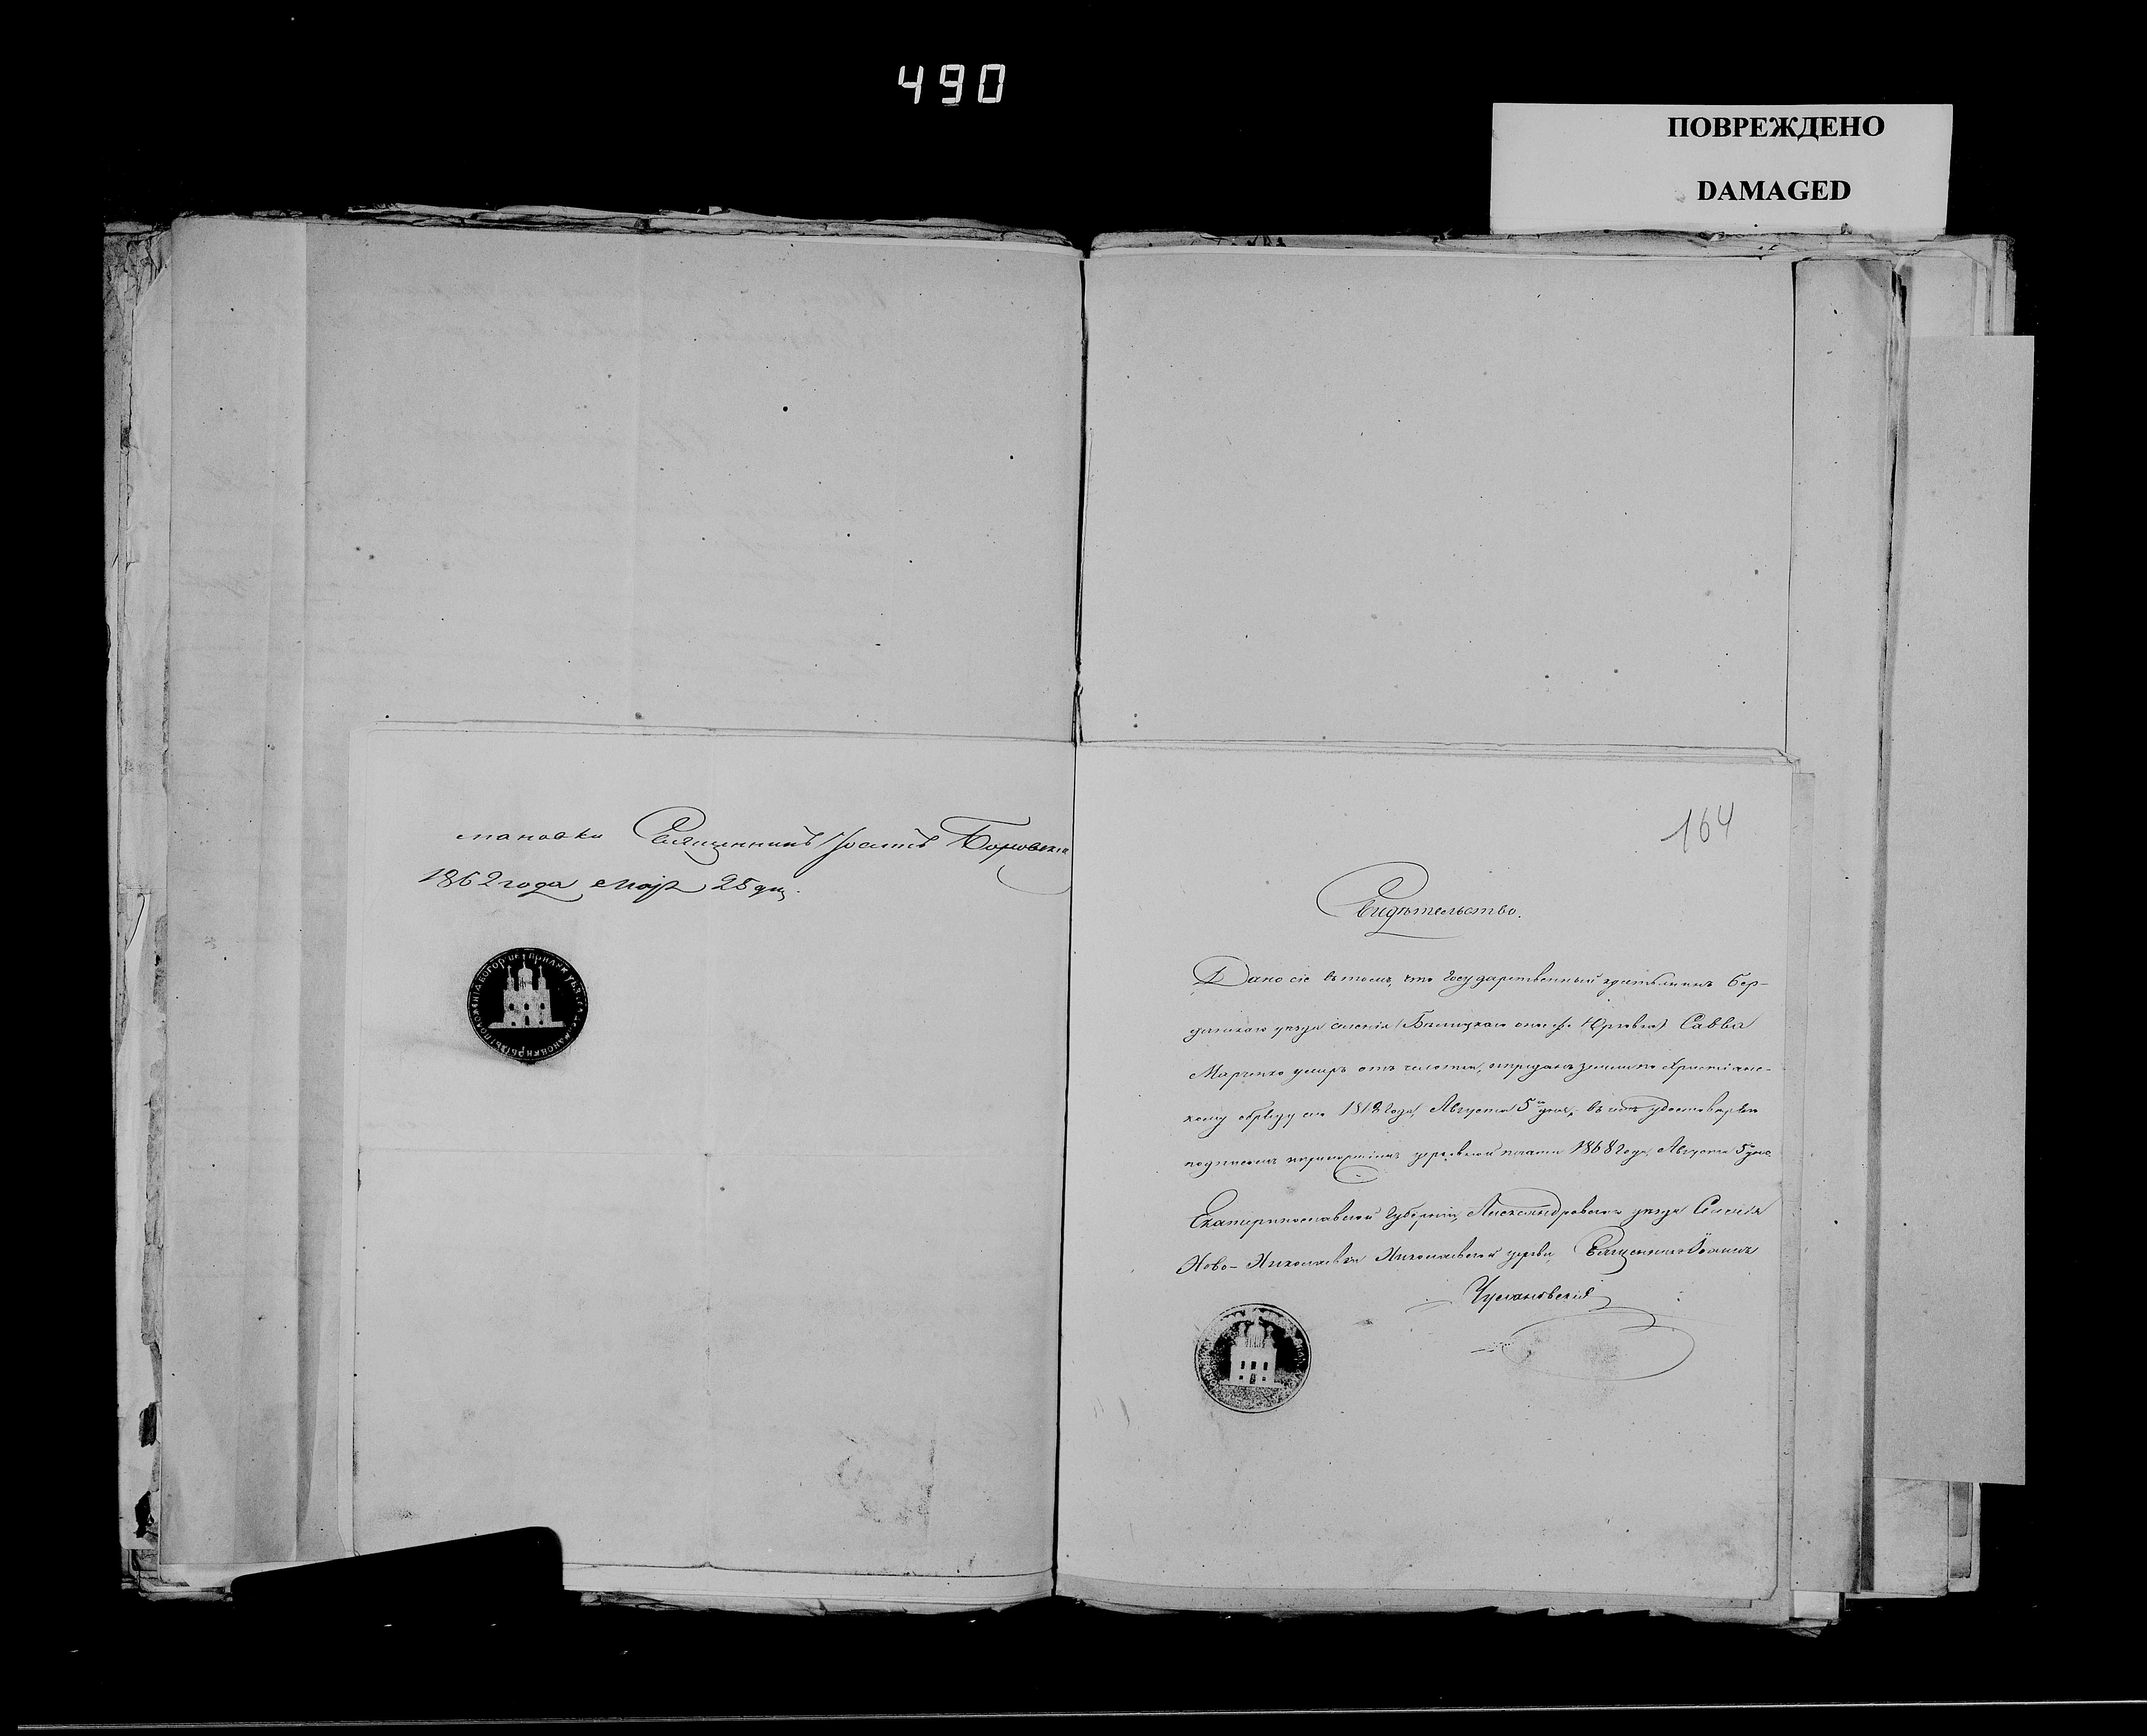 490
ПОВРЕЖДЕНО
DAMAGED
мановки Священникъ Іоаннъ Боровскі
1862 года Маія 25 дня.
164
Свидѣтельство.
Дано сіе въ томъ, что Государственный крестьянинъ Бер-
дянскаго уѣзда селенія Савва
Марченко умеръ отъ и преданъ землѣ по Христіанс-
кому обряду Августа 5го дня, въ чемъ удостовѣряю
подписомъ и приложеніемъ церковной печати 1868 года Августа 5 дня.
Екатеринославской Губерніи, Александровскаго уѣзда Селенія
Ново-Николаевки Николаевской церкви, Священникъ Іоаннъ
Чугановскій